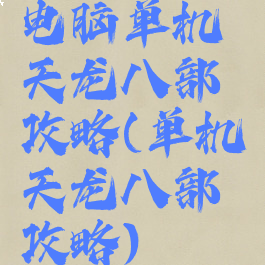 电脑单机
天龙八部
攻略(单机
天龙八部
攻略)